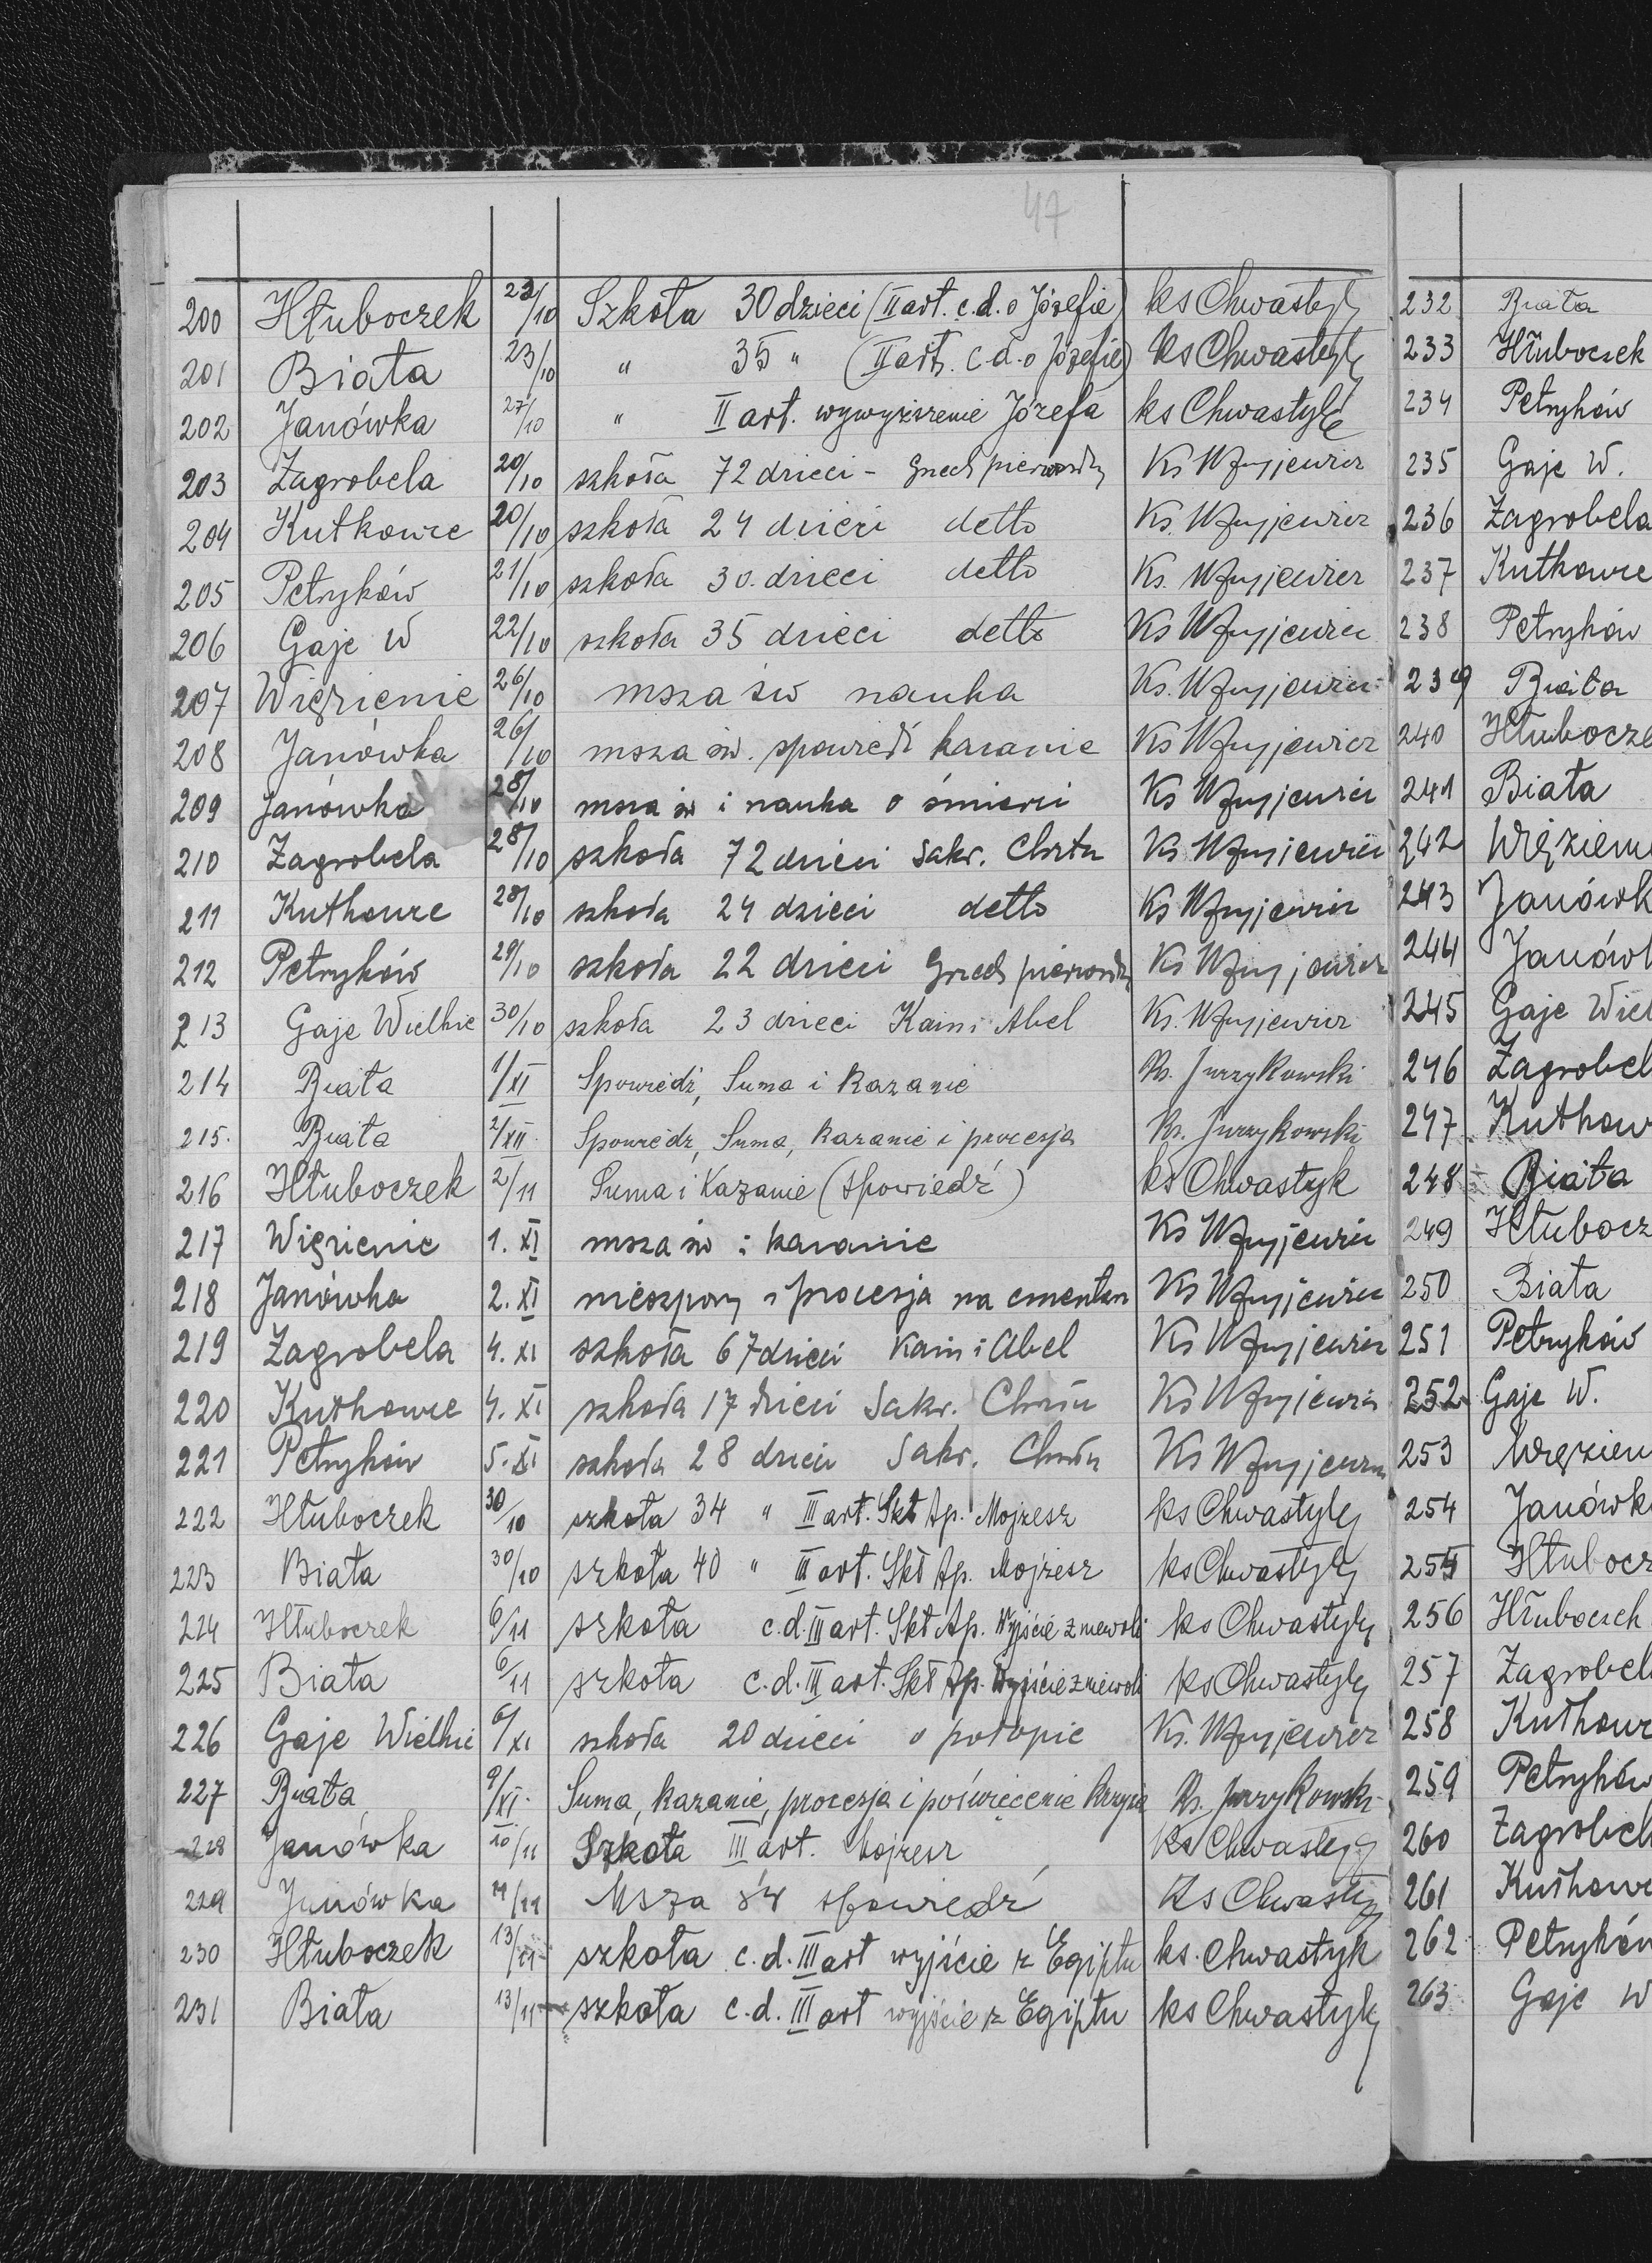 47
200 Hłuboczek 23/10 Szkoła 30 dzieci (II art. c.d. o Józefie) ks Chwastyk
201 Biała 23/10 " 35 " (II art. c d. o Józefie) ks Chwastyk
202 Janówka 27/10 " II art. wywyższenie Józefa ks Chwastyk
203 Zagrobela 20/10 szkoła 72 dzieci - Grzech pierworodny Ks
204 Kutkowce 20/10 szkoła 24 dzieci detto Ks.
205 Petryków 21/10 szkoła 30. dzieci detto Ks.
206 Gaje W 22/10 szkoła 35 dzieci detto Ks
207 Więzienie 26/10 msza św nauka Ks.
208 Janówka 26/10 msza św. spowiedź kazanie Ks
209 Janówka 28/10 msza św i nauka o śmierci Ks
210 Zagrobela 28/10 szkoła 72 dzieci Sakr. Chrztu Ks
211 Kutkowce 28/10 szkoła 24 dzieci detto Ks
212 Petryków 29/10 szkoła 22 dzieci Grzech pierworodny Ks
213 Gaje Wielkie 30/10 szkoła 23 dzieci Kain i Abel Ks.
214 Biała 1/XI Spowiedź, Suma i Kazanie Ks. Jurzykowski
215. Biała 2/XII. Spowiedź, Suma, Kazanie i procesja Ks. Jurzykowski
216 Hłuboczek 2/11 Suma i Kazanie (spowiedź) ks Chwastyk
217 Więzienie 1. XI msza św i kazanie Ks
218 Janówka 2. XI nieszpory i procesja na cmentarz Ks
219 Zagrobela 4. XI szkoła 67 dzieci Kain i Abel Ks
220 Kutkowce 4. XI szkoła 17 dzieci Sakr. Chrztu Ks
221 Petryków 5. XI szkoła 28 dzieci Sakr. Chrztu Ks
222 Hłuboczek 30/10 szkoła 34 " III art. Skł Ap. Mojżesz ks Chwastyk
223 Biała 30/10 szkoła 40 " III art. Skł Ap. Mojżesz ks Chwastyk
224 Hłuboczek 6/11 szkoła c.d. III art. Skł Ap. Wyjście z niewoli ks Chwastyk
225 Biała 6/11 szkoła c.d. III art. Skł Ap. Wyjście z niewoli ks Chwastyk
226 Gaje Wielkie 6/XI szkoła 20 dzieci o potopie Ks.
227 Biała 9/XI. Suma, kazanie, procesja i poświęcenie krzyża Ks. Jurzykowski
228 Janówka 10/11 Szkoła III art. Mojżesz ks Chwastyk
229 Janówka 11/11 Msza św spowiedź ks Chwastyk
230 Hłuboczek 13/11 szkoła c.d. III art wyjście z Egiptu ks. Chwastyk
231 Biała 13/11 szkoła c.d. III art wyjście z Egiptu ks Chwastyk
232 Biała
233 Hłuboczek
234 Petryków
235 Gaje W.
236 Zagrobela
237 Kutkowce
238 Petryków
239 Biała
240 Hłubocze
241 Biała
242 Więzieni
243 Janówk
244 Janówk
245 Gaje Wiel
246 Zagrobel
247 Kutkow
248 Biała
249 Hłubocz
250 Biała
251 Petryków
252 Gaje W.
253 Więzien
254 Janówk
255 Hłubocz
256 Hłuboczek
257 Zagrobel
258 Kutkowc
259 Petryków
260 Zagrobel
261 Kutkowc
262 Petryków
263 Gaje W